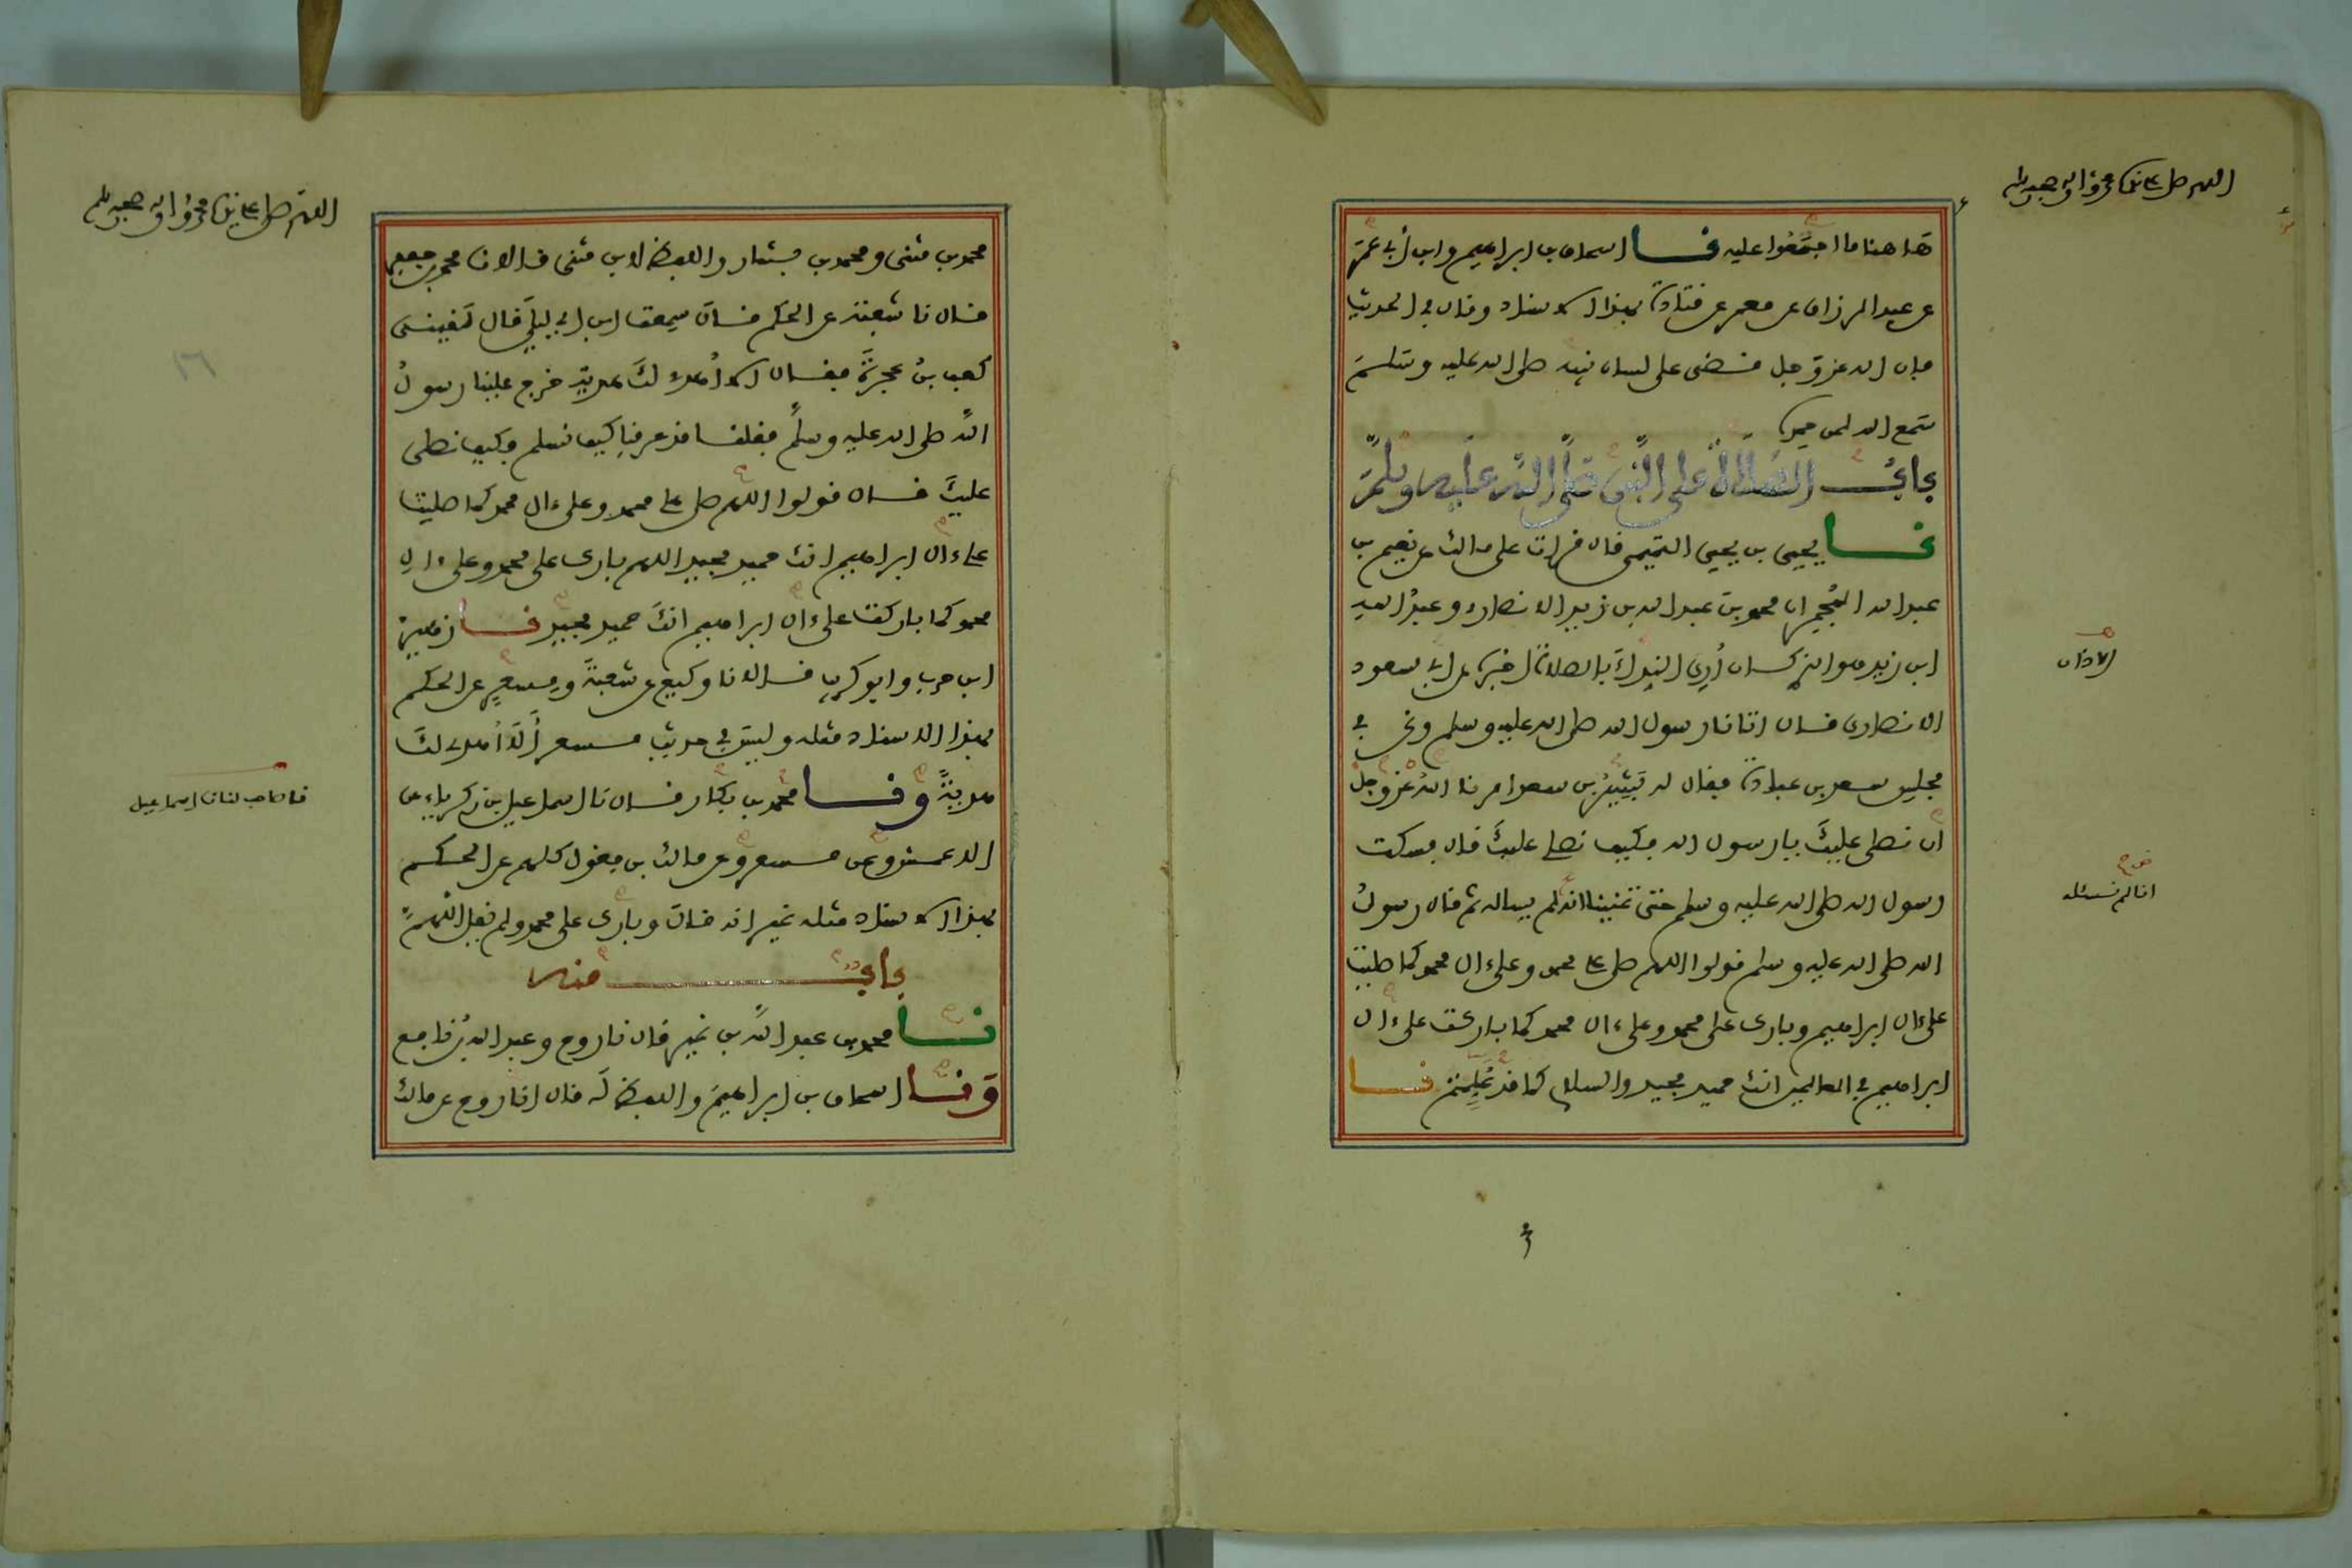 اللهم صل على نبينا محمد وآله وصحبه وسلم
هاهنا ما اجمعوا عليه نا اسحاق بن ابراهيم وابن أبي عمر
عن عبد الرزاق عن معمر عن قتادة بهذا الاسناد وقال في الحديث
فإن الله عز وجل قضى على لسان نبيه صلى الله عليه وسلم
سمع الله لمن حمده
باب الصلاة على النبي صلى الله عليه وسلم
نا يحيى بن يحيى التميمي قال قرأت على مالك عن نعيم بن
عبد الله المجمر ان محمد بن عبد الله بن زيد الانصاري وعبد الله
ابن زيد هو الذي كان أري النداء بالصلاة اخبره عن ابي مسعود
الانصاري قال اتانا رسول الله صلى الله عليه وسلم ونحن في
مجلس سعد بن عبادة فقال له بشير بن سعد امرنا الله عز وجل
ان نصلي عليك يا رسول الله فكيف نصلي عليك قال فسكت
رسول الله صلى الله عليه وسلم حتى تمنينا انه لم يساله ثم قال رسول
الله صلى الله عليه وسلم قولوا اللهم صل على محمد وعلى ءال محمد كما صليت
على ءال ابراهيم وبارك على محمد وعلى ءال محمد كما باركت على ءال
ابراهيم في العالمين انك حميد مجيد والسلام كما قد علمتم نا
الاذان
انا لم نسئله
اللهم صل على نبينا محمد وآله وصحبه وسلم
١٦
محمد بن مثنى ومحمد بن بشار واللفظ لابن مثنى قالا نا محمد بن جعفر
قال نا شعبة عن الحكم قال سمعت ابن ابي ليلى قال لقيني
كعب بن عجرة فقال الا أهدي لك هدية خرج علينا رسول
الله صلى الله عليه وسلم فقلنا قد عرفنا كيف نسلم فكيف نصلي
عليك قال قولوا اللهم صل على محمد وعلى ءال محمد كما صليت
على ءال ابراهيم انك حميد مجيد اللهم بارك على محمد وعلى ءال
محمد كما باركت على ءال ابراهيم انك حميد مجيد نا زهير
ابن حرب وابو كريب قالا نا وكيع عن شعبة ومسعر عن الحكم
بهذا الاسناد مثله وليس في حديث مسعر ألا أهدي لك
هدية ونا محمد بن بكار قال نا اسماعيل بن زكرياء عن
الاعمش وعن مسعر وعن مالك بن مغول كلهم عن الحكم
بهذا الاسناد مثله غير انه قال وبارك على محمد ولم يقل اللهم
باب منه
نا محمد بن عبد الله بن نمير قال نا روح وعبد الله بن نافع
ونا اسحاق بن ابراهيم واللفظ له قال انا روح عن مالك